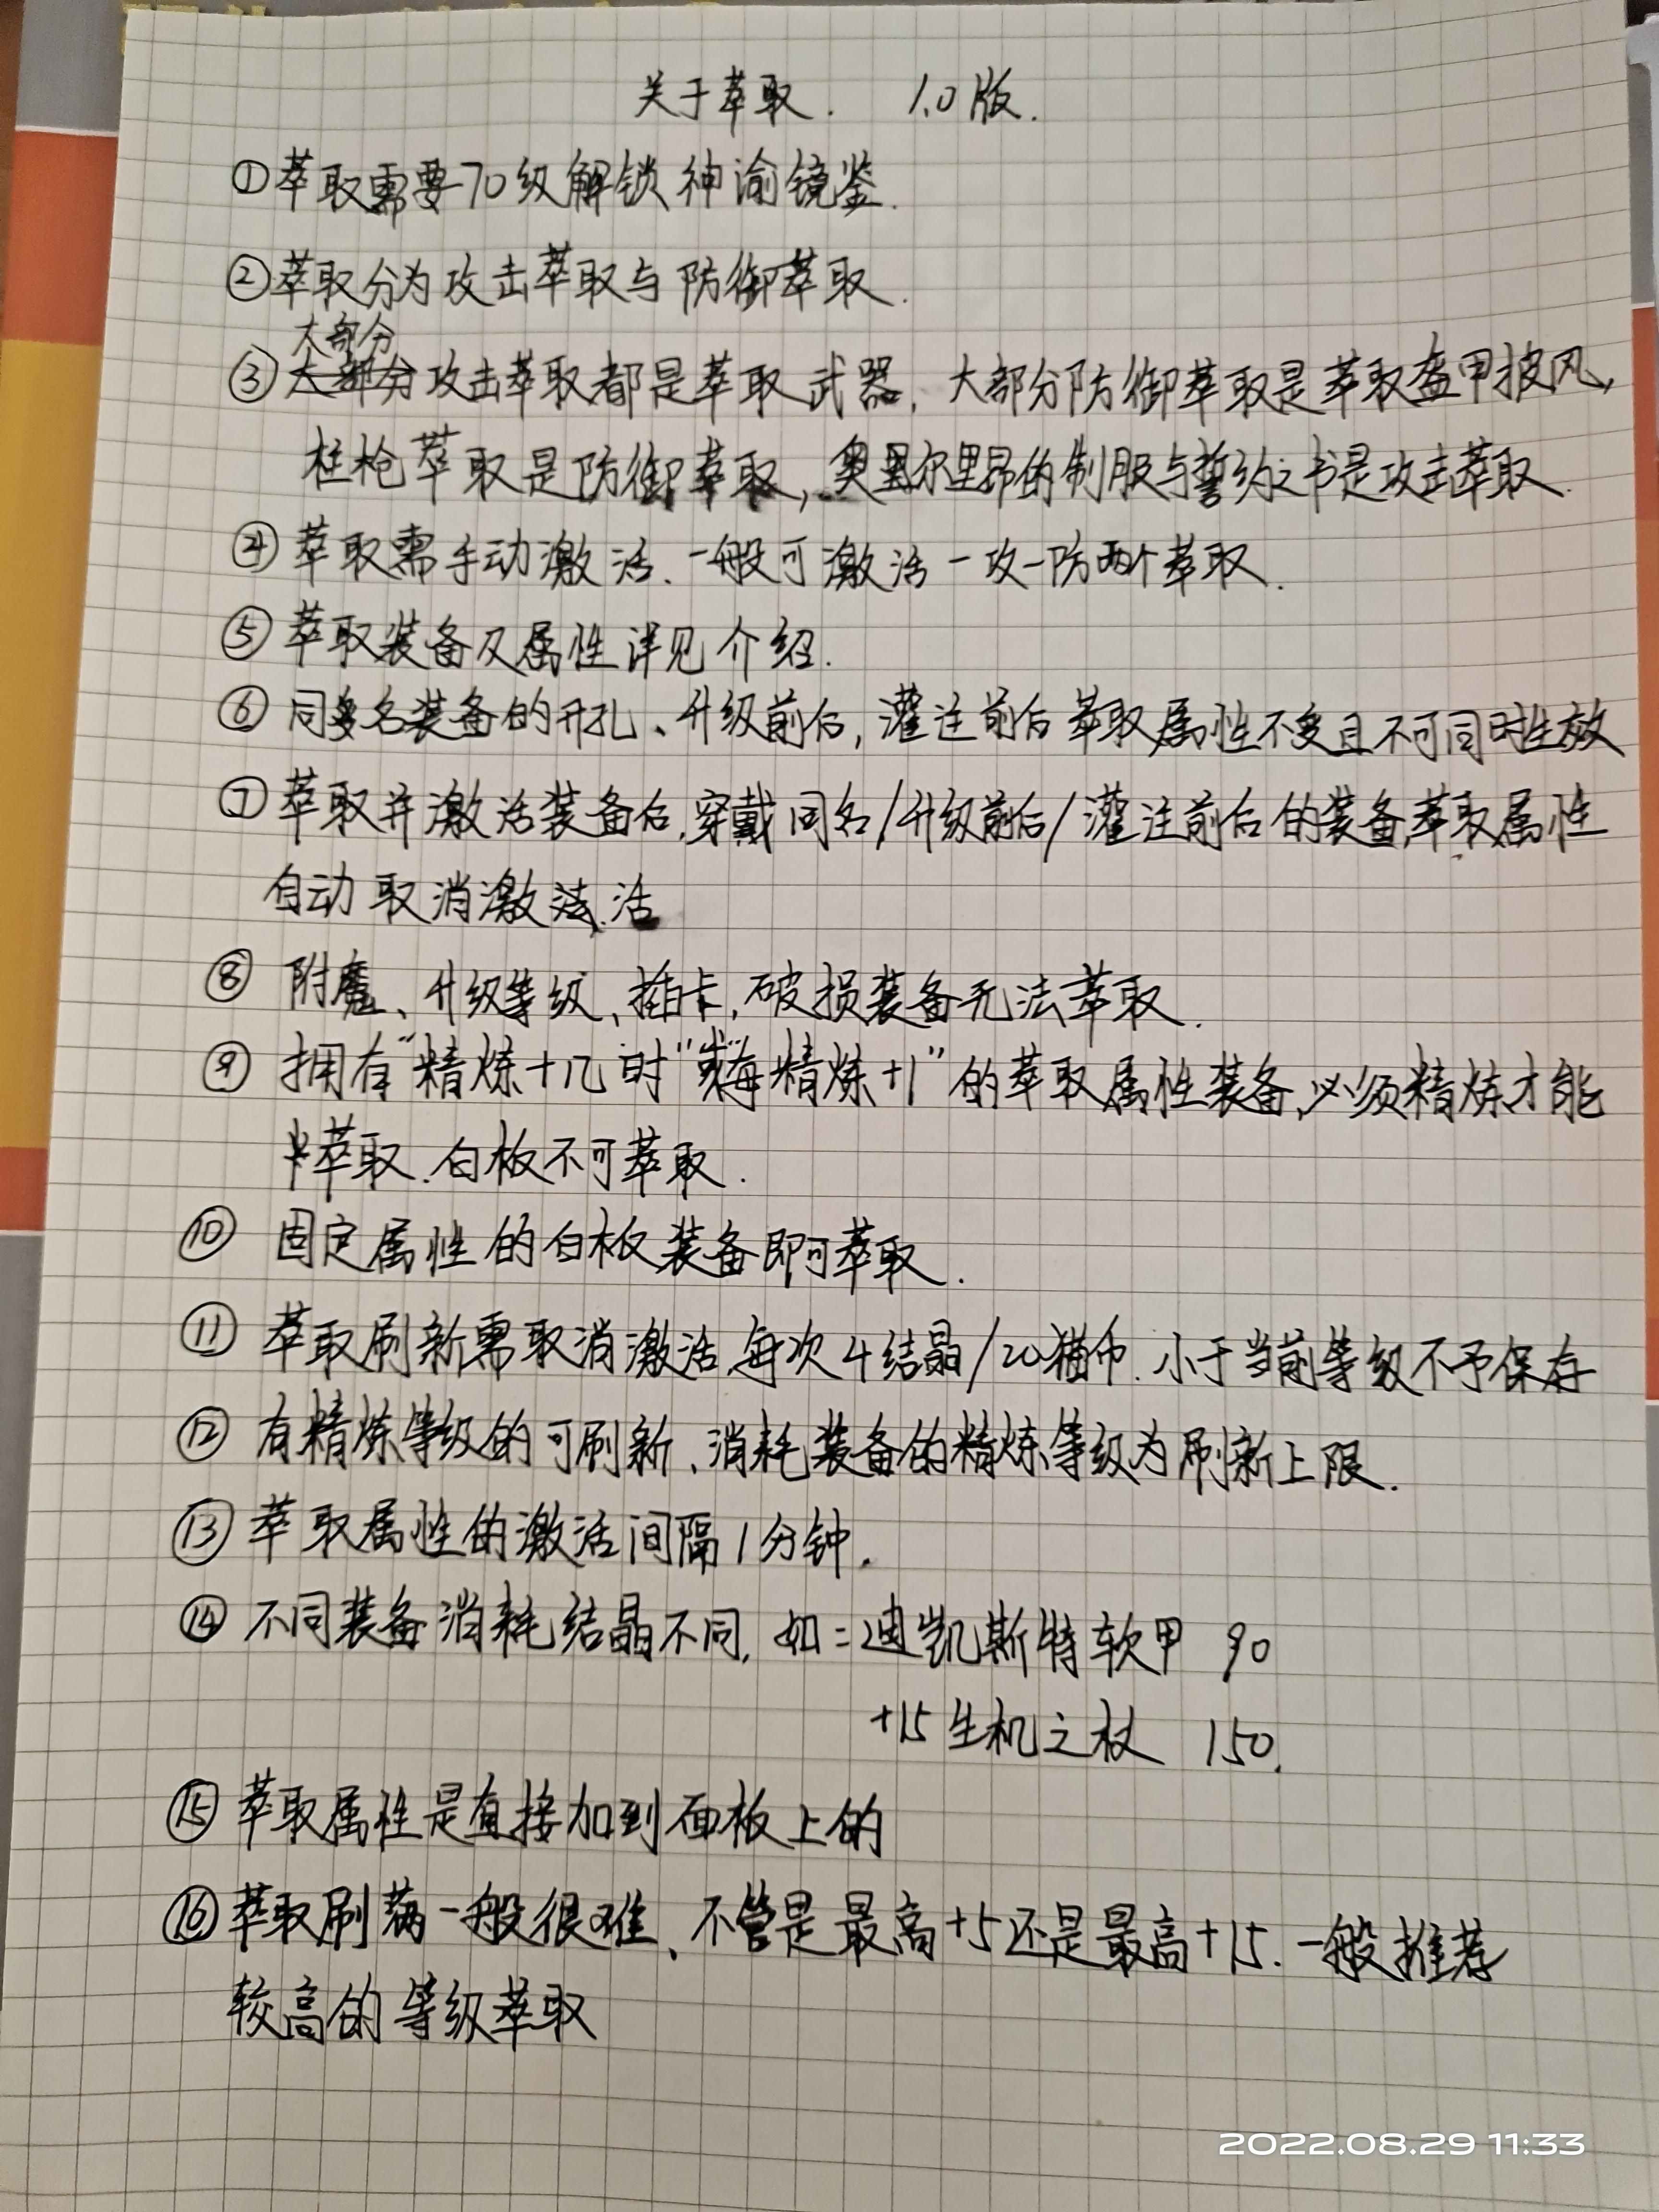 关于萃取. 1.0版.
①萃取需要70级解锁神谕镜鉴.
②萃取分为攻击萃取与防御萃取.
大部分
③大部分攻击萃取都是萃取武器,大部分防御萃取是萃取盔甲披风,
柱枪萃取是防御萃取,奥里尔里昂的制服与誓约之书是攻击萃取.
④萃取需手动激活、一般可激活一攻一防两个萃取.
⑤萃取装备及属性详见介绍.
⑥同名装备的开孔、升级前后,灌注前后萃取属性不变且不可同时生放
⑦萃取并激活装备后,穿戴同名/升级前后/灌注前后的装备,萃取属性
自动取消激活
⑧附魔、升级等级、插卡,破损装备无法萃取.
⑨拥有“精炼+几时”“或每精炼+1”的萃取属性装备,必须精炼才能
萃取.白板不可萃取.
⑩固定属性的白板装备即可萃取.
⑪萃取刷新需取消激活,每次4结晶/20猫币.小于当前等级不予保存
⑫有精炼等级的可刷新、消耗装备的精炼等级为刷新上限.
⑬萃取属性的激活间隔1分钟.
⑭不同装备消耗结晶不同,如:迪凯斯特软甲 90
+15生机之杖 150.
⑮萃取属性是直接加到面板上的
⑯萃取刷满一般很难、不管是最高+5还是最高+15.一般推荐
较高的等级萃取
2022.08.29 11:33